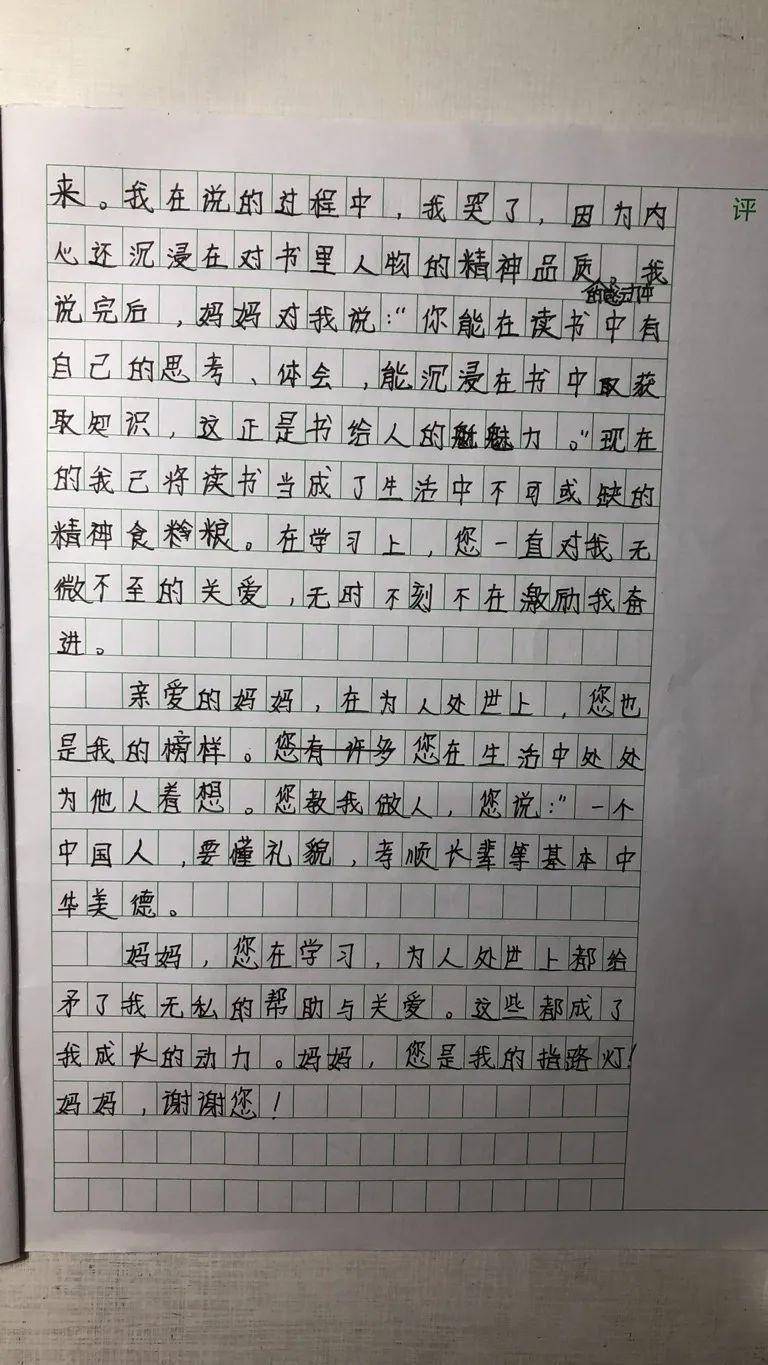 评
来。我在说的过程中，我哭了，因为内
心还沉浸在对书里人物的精神品质。我
的感动中
说完后，妈妈对我说：“你能在读书中有
自己的思考、体会，能沉浸在书中取获
取知识，这正是书给人的魅魅力。”现在
的我已将读书当成了生活中不可或缺的
精神食粮。在学习上，您一直对我无
微不至的关爱，无时不刻不在激励我奋
进。
亲爱的妈妈，在为人处世上，您也
是我的榜样。您有许多您在生活中处处
为他人着想。您教我做人，您说：”一个
中国人，要懂礼貌，孝顺长辈等基本中
华美德。
妈妈，您在学习，为人处世上都给
矛了我无私的帮助与关爱。这些都成了
我成长的动力。妈妈，您是我的指路灯！
妈妈，谢谢您！